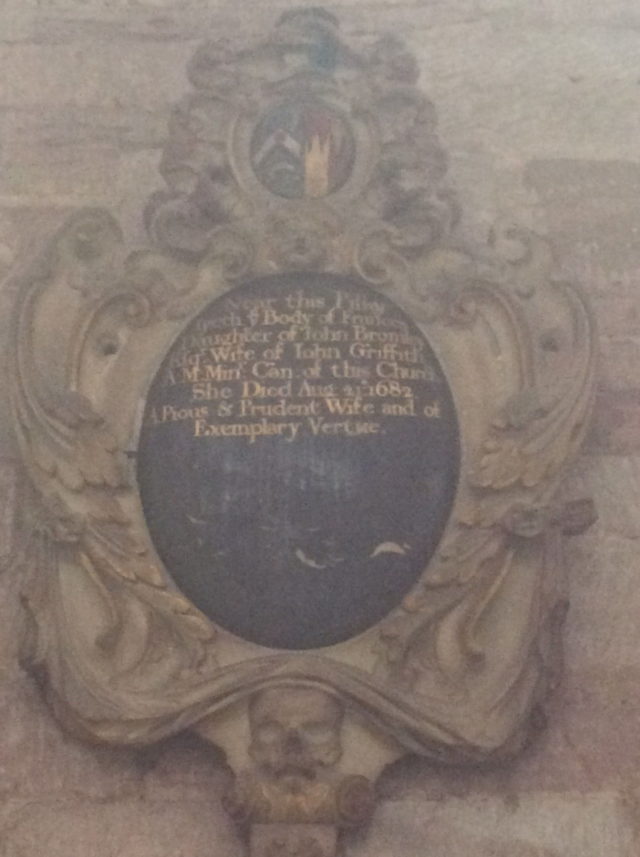 Near this Pillar
lyeth yͤ Body of Frances
Daughter of John Bromley
Esqʳ Wife of John Griffith
A.M. Minʳ Can. of this Church
She Died Aug. 21ˢᵗ 1682
A Pious & Prudent Wife and of
Exemplary Vertue.